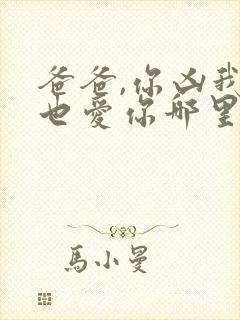 爸爸,你凶我
也爱你哪里
馬小曼